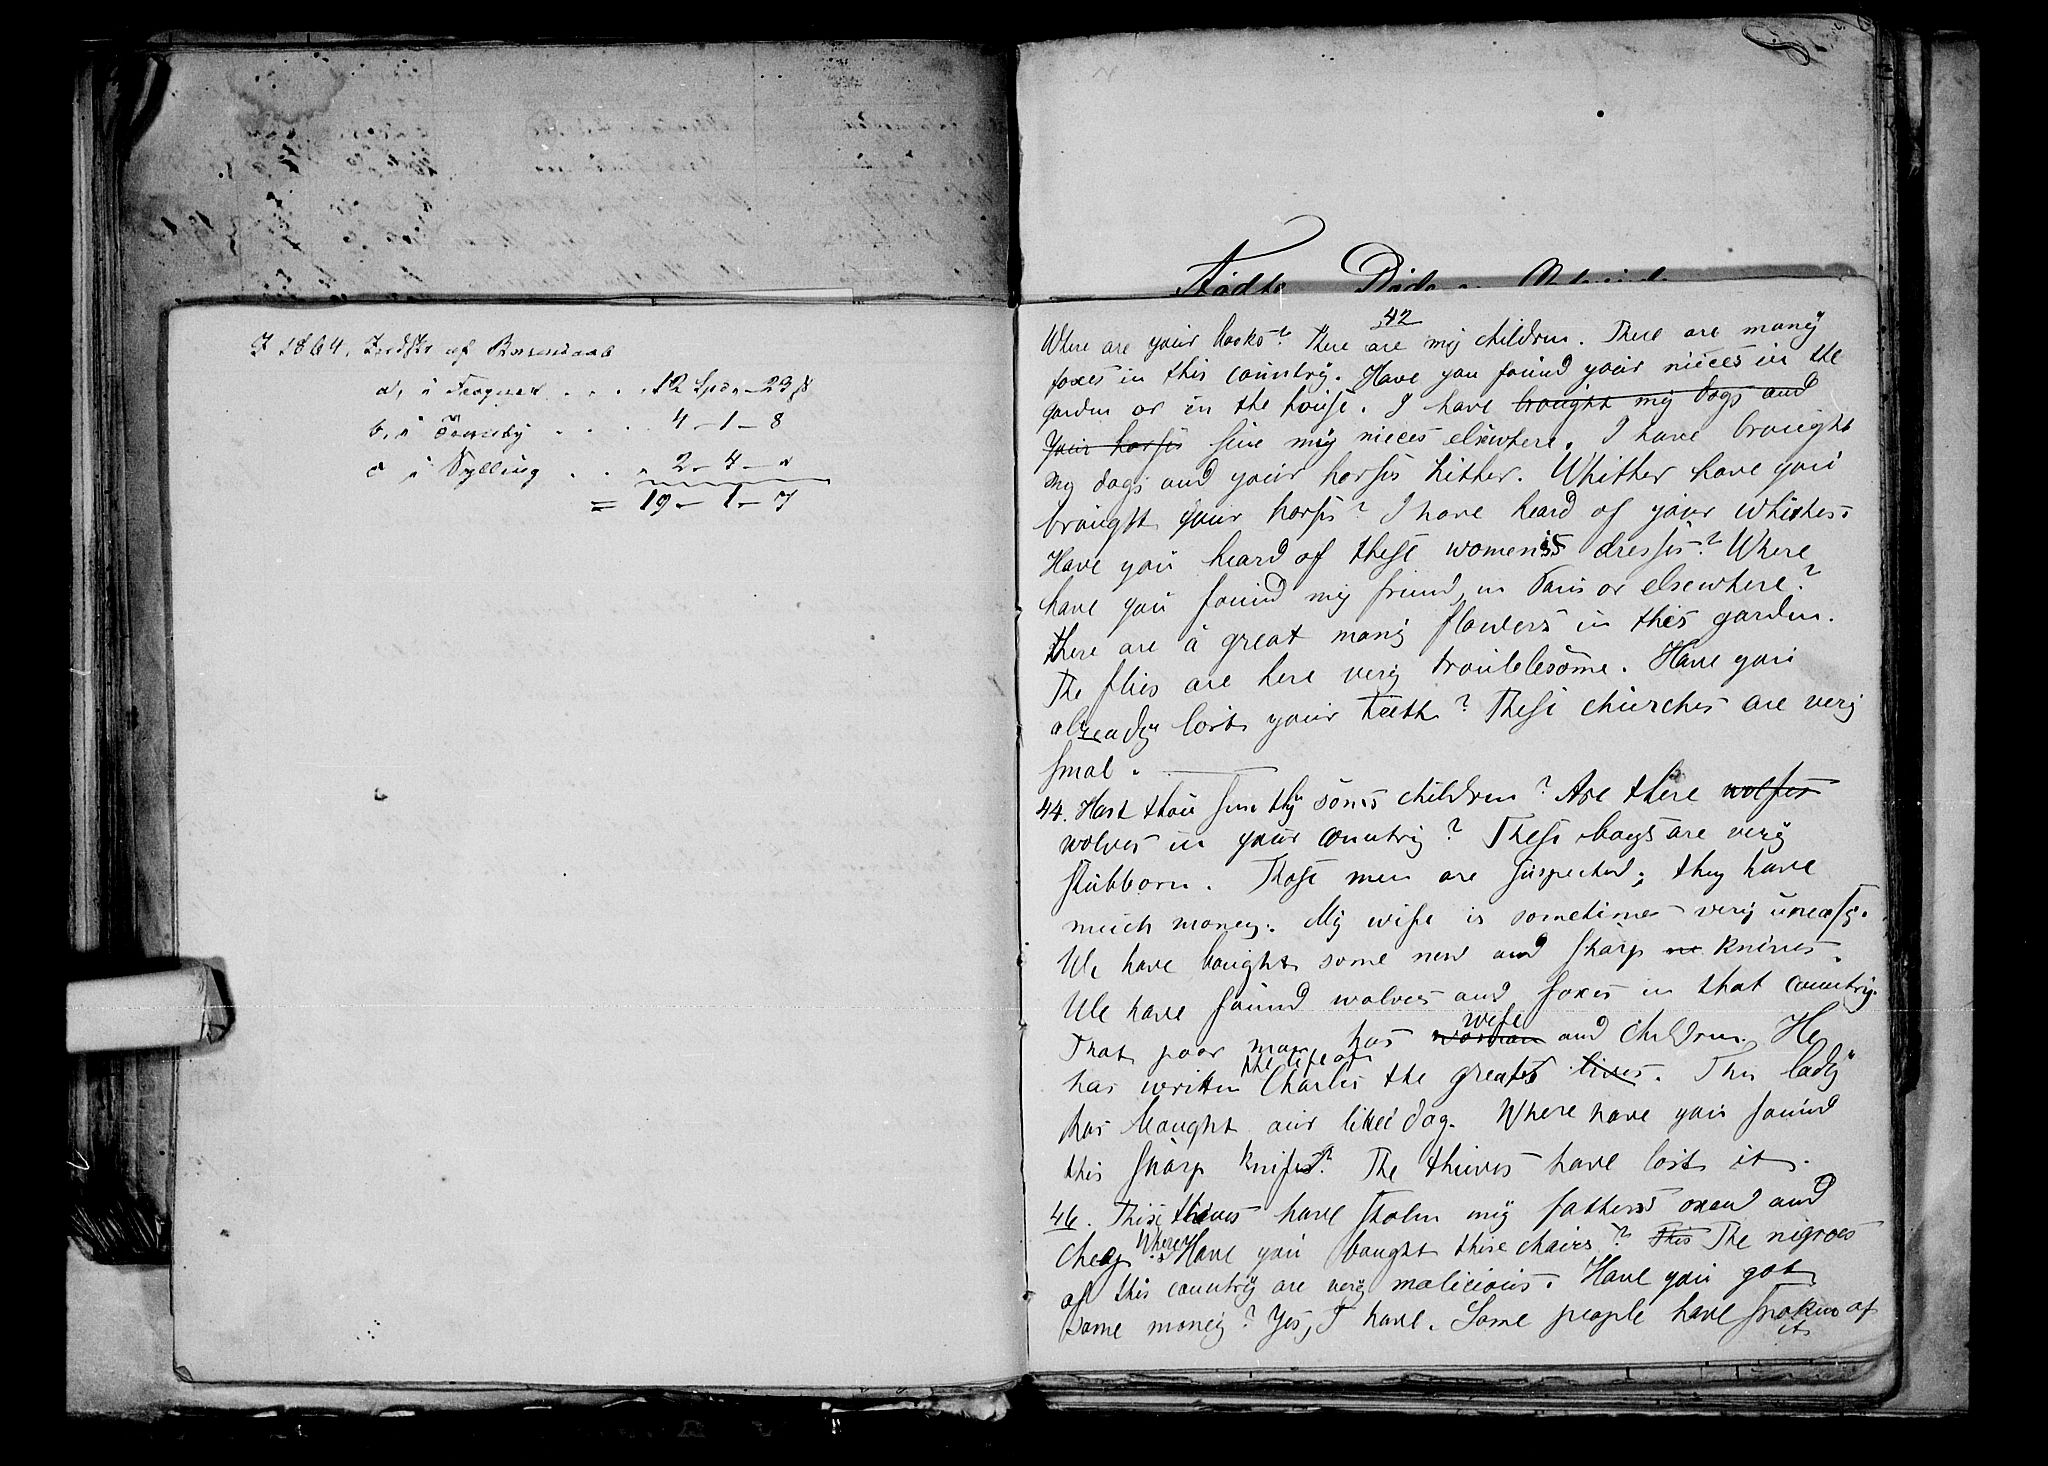 I 1864, af
a, i Frogner . . . 12 Spd. - 23 ß
b, i Tömeby . . . 4 - 1 - 8
c i Sylling . . . 2 - 4 - "
= 19 - 1 - 7
Födte Döde
42
Where are your books? There are my children. There are many
foxes in this country. Have you found your nieces in the
garden or in the house. I have brought my dogs and
your horses sene my nieces elsewhere. I have brought
my dogs and your horses hither. Whither have you
brought your horses? I have heard of your whishes.
Have you heard of these womens's dresses? Where
have you found my friend, in Paris or elsewhere?
there are a great many flowers in this garden.
The flies are here very troublesome. Have you
already lost your teeth? These churches are very
smal.
44. Hast thou sene thy sons children? Are there wolfes
wolves in your country? These boys are very
stubborn. Those men are suspected; they have
much money. My wife is sometimes very uneasy.
We have bought some new and sharp ne knives.
We have found wolves and foxes in that country.
That poor man has woman wife and children. He
has written the life of Charles the greates lives. This lady
has bought our littel dog. Where have you found
this sharp knife? The thieves have lost it.
46. These thieves have stolen my fathers oxen and
cheap Where Have you bought these chairs? This The nigroes
of this country are very malicious. Have you got
some money? Yes, I have. Some people have spoken of
it